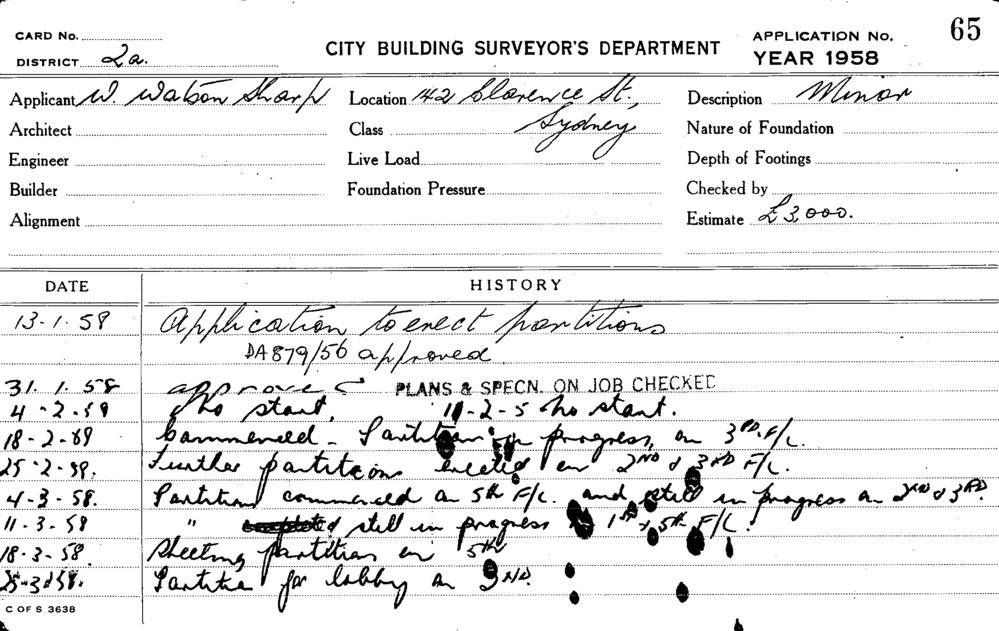 CARD No. CITY BUILDING SURVEYOR'S DEPARTMENT APPLICATION No. 65
DISTRICT 2a. YEAR 1958
Applicant W. Watson Sharp Location 142 Clarence St., Sydney Description Minor
Architect Class Nature of Foundation
Engineer Live Load Depth of Footings
Builder Foundation Pressure Checked by
Alignment Estimate £3,000.
DATE HISTORY
13-1-58 Application to erect partitions
DA 879/56 approved
31.1.58 approved PLANS & SPECN. ON JOB CHECKED
4-2-59 No start, 11-2-5 No start.
18-2-89 Commenced - Partition in progress, on 3RD. F/L.
25-2-59. Further partitions erected on 2ND & 3RD F/L.
4-3-58. Partition commenced on 5th F/L. and still in progress on 2ND & 3RD.
11-3-58 " still in progress 1st & 5th F/L.
18-3-58 Sheeting partition on 5th
25-3-58. Partition for lobby on
C OF S 3638